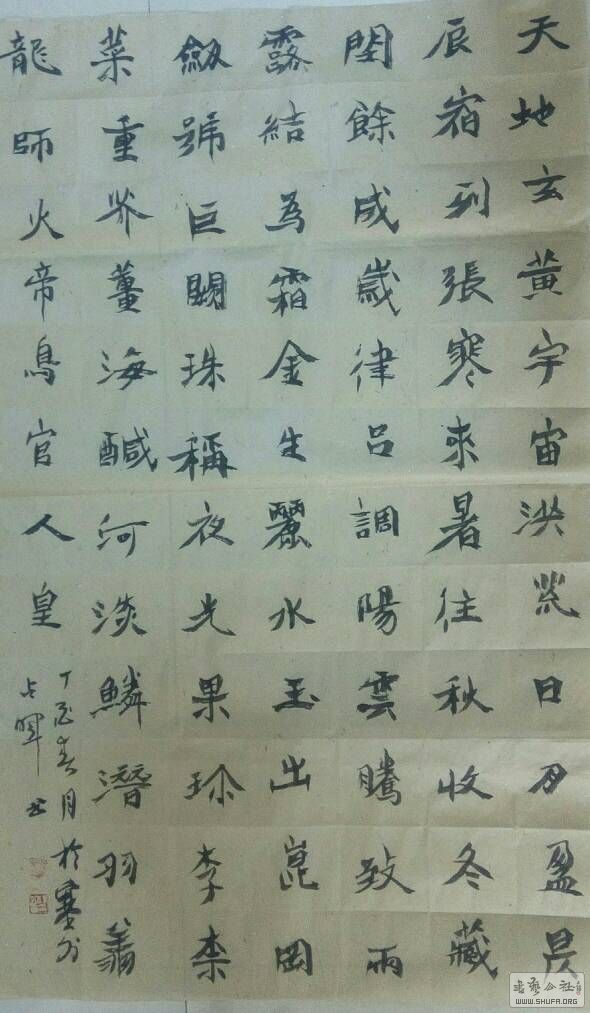 天地玄黃宇宙洪荒日月盈昃
辰宿列張寒來暑往秋收冬藏
閏餘成歲律呂調陽雲騰致雨
露結為霜金生麗水玉出崑岡
劔號巨闕珠稱夜光果珍李柰
菜重芥薑海鹹河淡鱗潛羽翔
龍師火帝鳥官人皇
丁酉春月於塞外
占暉书
书艺公社
WWW.SHUFA.ORG